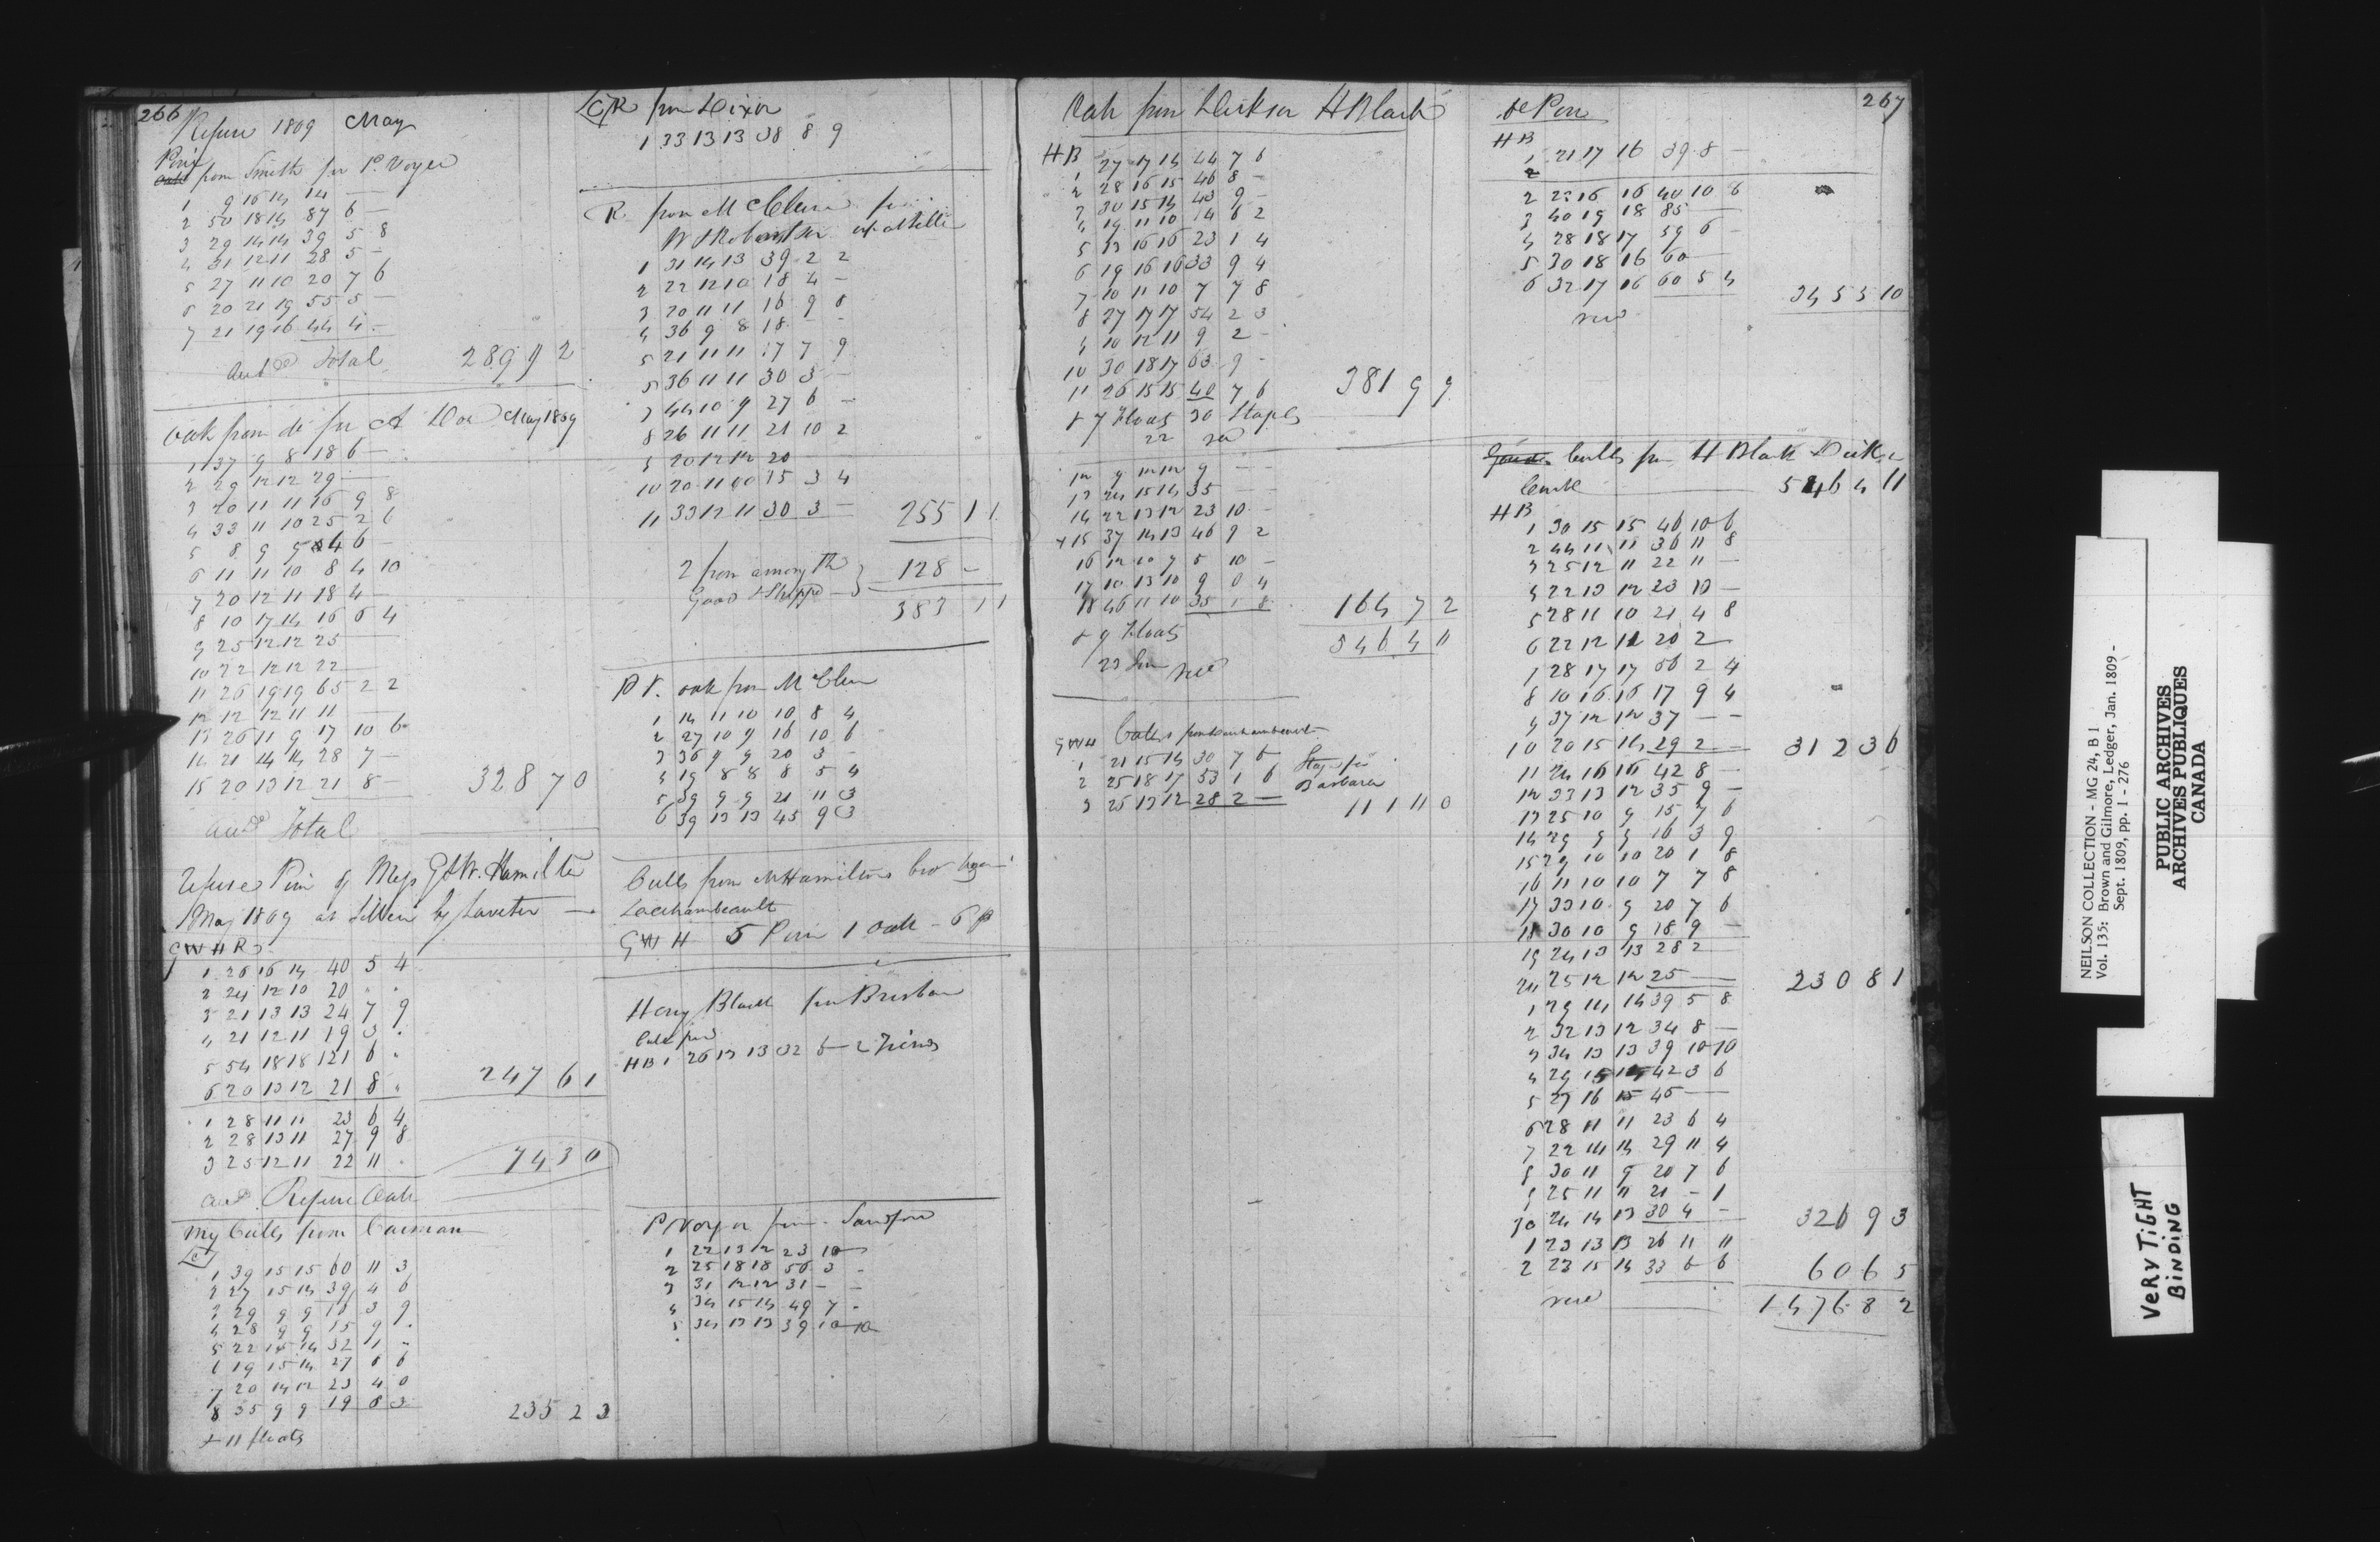 266
Refuse 1809 May
Pine
from Smith for P. Voyer
1 9 16 14 14 —
2 50 18 14 87 6 —
3 29 14 14 39 5 8
4 31 12 11 28 5 —
5 27 11 10 20 7 6
6 20 21 19 55 5 —
7 21 19 16 44 4 —
Total 289 9 2
Oak from do for A Dor May 1809
1 37 9 8 18 6 —
2 29 12 12 29 —
3 20 11 11 16 9 8
4 33 11 10 25 2 6
5 8 9 9 4 6 —
6 11 11 10 8 4 10
7 20 12 11 18 4 —
8 10 17 14 16 6 4
9 25 12 12 25 —
10 22 12 12 22 —
11 26 19 19 65 2 2
12 12 12 11 11 —
13 26 11 9 17 10 6
14 21 14 14 28 7 —
15 20 13 12 21 8 — 328 7 0
Total
Refuse Pine of Mess G & W. Hamilton
May 1809 at
GWHR
1 26 16 14 40 5 4
2 24 12 10 20 " "
3 21 13 13 24 7 9
4 21 12 11 19 3 "
5 54 18 18 121 6 "
6 20 13 12 21 8 " 247 6 1
1 28 11 11 23 6 4
2 28 13 11 27 9 8
3 25 12 11 22 11 " 74 3 0
Refuse Oak
My Culls from Carman
1 39 15 15 60 11 3
2 27 15 14 39 4 6
3 29 9 9 16 3 9
4 28 9 9 15 9 "
5 22 15 14 32 1 —
6 19 15 14 27 8 6
7 20 14 12 23 4 0
8 35 9 9 19 8 3 235 2 3
+ 11 floats
R from Dixon
1 33 13 13 38 8 9
R from M Clure for
W S Robertson
1 31 14 13 39 2 2
2 22 12 10 18 4 —
3 20 11 11 16 9 8
4 36 9 8 18 — —
5 21 11 11 17 7 9
5 36 11 11 30 3 —
7 44 10 9 27 6 —
8 26 11 11 21 10 2
9 20 12 12 20 —
10 20 11 10 15 3 4
11 33 12 11 30 3 — 255 1 1
2 from among the
Good & Shipped 128 —
383 1 1
P V. oak from M Clure
1 14 11 10 10 8 4
2 27 10 9 16 10 6
3 36 9 9 20 3 —
4 19 8 8 8 5 4
5 39 9 9 21 11 3
6 39 13 13 45 9 3
Culls from M Hamiltons
Lachambeault
GWH 5 Pine 1 Oak - 6 p
Heny Black for Brisbane
HB 1 26 13 13 32 6 — 2
P Voyer from Sandford
1 22 13 12 23 10 —
2 25 18 18 56 3 —
3 31 12 12 31 — —
4 34 15 14 49 7 —
5 34 13 13 39 10 10
Oak from Dickson H Black
HB
1 27 17 14 44 7 6
2 28 16 15 46 8 —
3 30 15 14 43 9 —
4 19 11 10 14 6 2
5 13 16 16 23 1 4
6 19 16 16 33 9 4
7 10 11 10 7 7 8
8 27 17 17 54 2 3
9 10 12 11 9 2 —
10 30 18 17 63 9 —
11 26 15 15 40 7 6 381 9 9
+ 7 Floats 30 Staples
22
12 9 12 12 9 — —
13 24 15 14 35 — —
14 22 13 12 23 10 —
+ 15 37 14 13 46 9 2
16 12 10 7 5 10 —
17 10 13 10 9 0 4
18 46 11 10 35 1 8 164 7 2
+ 9 Floats 546 4 11
GWH Culls from Lachambeault
1 21 15 14 30 7 6
2 25 18 17 53 1 6 Barbara
3 26 13 12 28 2 — 111 11 0
267
do Pine
HB
1 21 17 16 39 8 —
2 23 16 16 40 10 8
3 40 19 18 85 —
4 28 18 17 59 6 —
5 30 18 16 60 —
6 32 17 16 60 5 4 345 5 10
Culls from H Black Dickson
546 4 11
HB
1 30 15 15 46 10 6
2 44 11 11 36 11 8
3 25 12 11 22 11 —
4 22 13 12 23 10 —
5 28 11 10 21 4 8
6 22 12 11 20 2 —
7 28 17 17 56 2 4
8 10 16 16 17 9 4
9 37 12 12 37 — —
10 20 15 14 29 2 — 312 3 6
11 24 16 16 42 8 —
12 33 13 12 35 9 —
13 25 10 9 15 7 6
14 29 9 9 16 3 9
15 29 10 10 20 1 8
16 11 10 10 7 7 8
17 33 10 9 20 7 6
18 30 10 9 18 9 —
19 24 13 13 28 2 —
20 25 12 12 25 — 230 8 1
1 29 14 14 39 5 8
2 32 13 12 34 8 —
3 34 13 13 39 10 10
4 29 15 14 42 3 6
5 27 16 15 45 —
6 28 11 11 23 6 4
7 22 14 14 29 11 4
8 30 11 9 20 7 6
9 25 11 11 21 — 1
10 24 14 13 30 4 — 326 9 3
1 23 13 13 26 11 11
2 23 15 14 33 6 6 60 6 5
1476 8 2
NEILSON COLLECTION - MG 24, B 1
Vol. 135: Brown and Gilmore, Ledger, Jan. 1809 -
Sept. 1809, pp. 1 - 276
PUBLIC ARCHIVES
ARCHIVES PUBLIQUES
CANADA
VERY TIGHT
BINDING